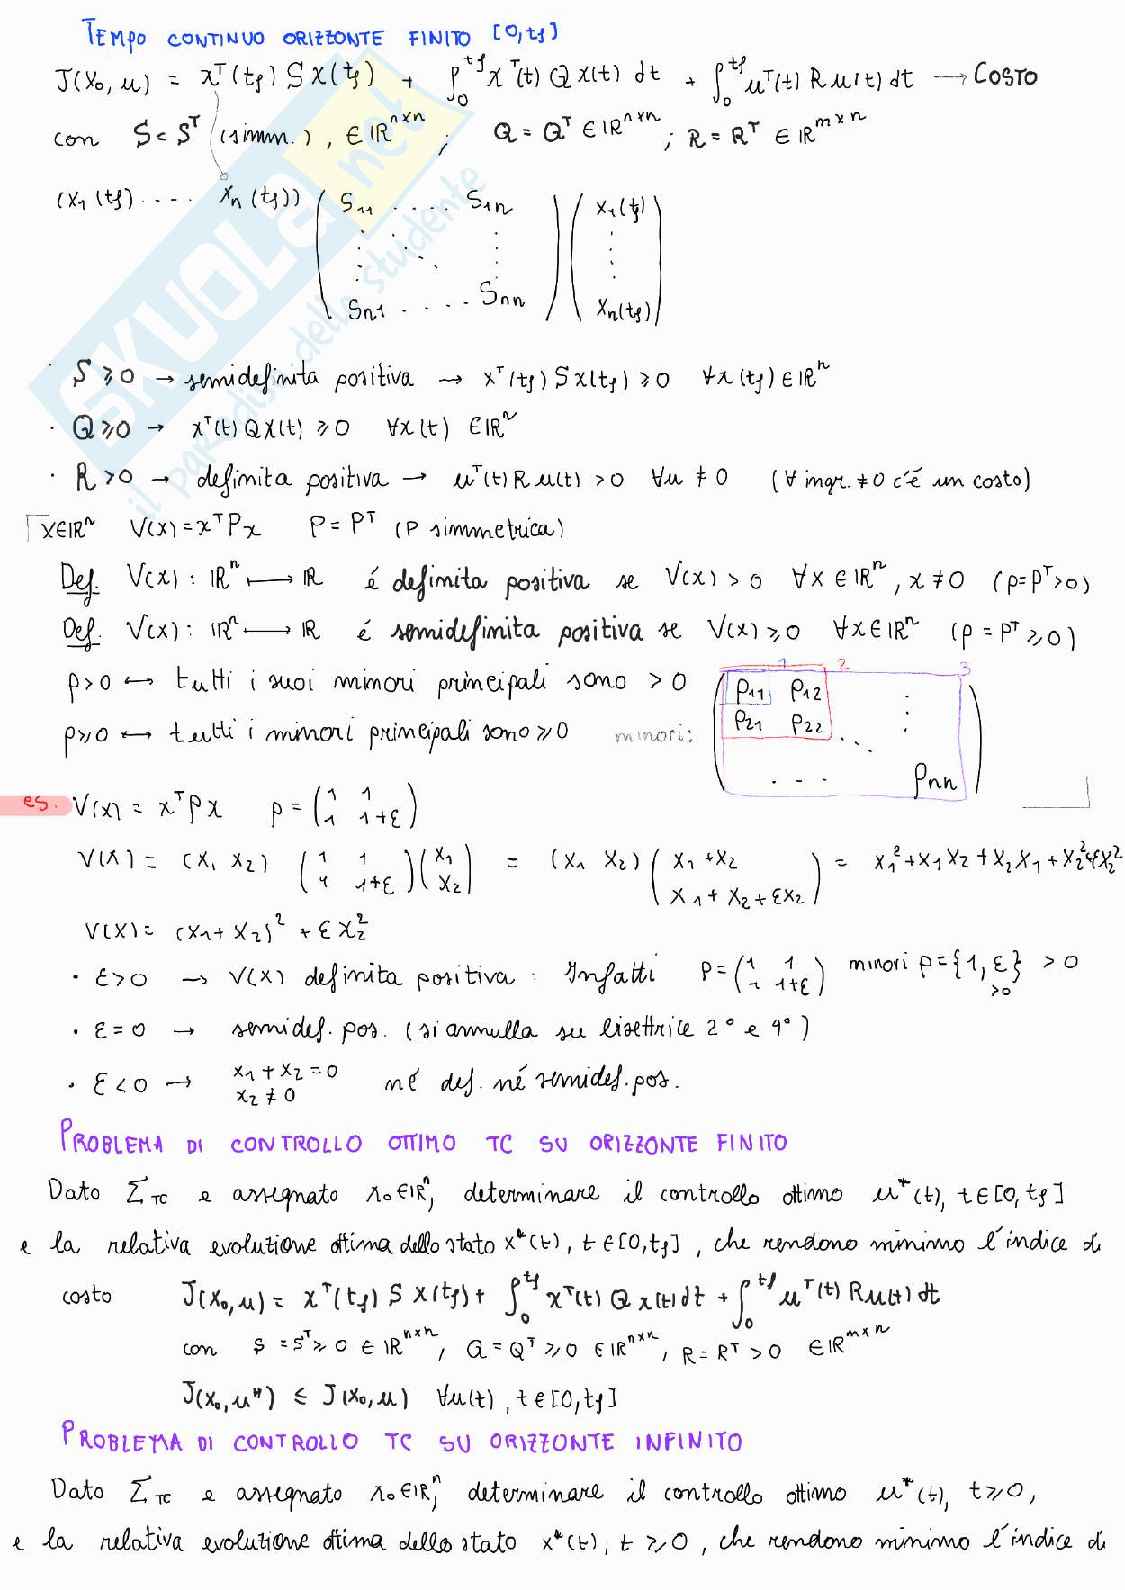 TEMPO CONTINUO ORIZZONTE FINITO [0,tf]
J(x₀,u) = xᵀ(tf) S x(tf) + ∫₀^tf xᵀ(t) Q x(t) dt + ∫₀^tf uᵀ(t) R u(t) dt → COSTO
con S = Sᵀ (simm.), ∈ ℝⁿˣⁿ ; Q = Qᵀ ∈ ℝⁿˣⁿ ; R = Rᵀ ∈ ℝᵐˣⁿ
(x₁(tf) .... xₙ(tf)) ( S₁₁ .... S₁ₙ ) ( x₁(tf) )
Sₙ₁ .... Sₙₙ xₙ(tf)
· S ≥ 0 → semidefinita positiva → xᵀ(tf) S x(tf) ≥ 0 ∀x(tf) ∈ ℝⁿ
· Q ≥ 0 → xᵀ(t) Q x(t) ≥ 0 ∀x(t) ∈ ℝⁿ
· R > 0 → definita positiva → uᵀ(t) R u(t) > 0 ∀u ≠ 0 (∀ ingr. ≠ 0 c'é un costo)
x∈ℝⁿ V(x) = xᵀPx P = Pᵀ (P simmetrica)
Def. V(x) : ℝⁿ ⟼ ℝ é definita positiva se V(x) > 0 ∀x ∈ ℝⁿ, x ≠ 0 (P=Pᵀ>0)
Def. V(x) : ℝⁿ ⟼ ℝ é semidefinita positiva se V(x) ≥ 0 ∀x ∈ ℝⁿ (P = Pᵀ ≥ 0)
P>0 ↔ tutti i suoi minori principali sono > 0
P≥0 ↔ tutti i minori principali sono ≥ 0 minori:
1 2 3
P₁₁ P₁₂ ⋮
P₂₁ P₂₂ ⋱
... Pₙₙ
es. V(x) = xᵀPx P = (1 1; 1 1+ε)
V(x) = (x₁ x₂) (1 1; 1 1+ε) (x₁; x₂) = (x₁ x₂) (x₁+x₂; x₁+x₂+εx₂) = x₁²+x₁x₂+x₂x₁+x₂²+εx₂²
V(x) = (x₁+x₂)² + εx₂²
· ε>0 → V(x) definita positiva : Infatti P = (1 1; 1 1+ε) minori P = {1, ε} > 0
>0
· ε=0 → semidef. pos. (si annulla su bisettrice 2° e 4°)
· ε<0 → x₁+x₂=0 x₂≠0 né def. né semidef. pos.
PROBLEMA DI CONTROLLO OTTIMO TC SU ORIZZONTE FINITO
Dato Σ_TC e assegnato x₀∈ℝⁿ, determinare il controllo ottimo u*(t), t∈[0,tf]
e la relativa evoluzione ottima dello stato x*(t), t∈[0,tf], che rendono minimo l'indice di
costo J(x₀,u) = xᵀ(tf) S x(tf) + ∫₀^tf xᵀ(t) Q x(t) dt + ∫₀^tf uᵀ(t) R u(t) dt
con S = Sᵀ ≥ 0 ∈ ℝⁿˣⁿ, Q = Qᵀ ≥ 0 ∈ ℝⁿˣⁿ, R = Rᵀ > 0 ∈ ℝᵐˣⁿ
J(x₀,u*) ≤ J(x₀,u) ∀u(t), t∈[0,tf]
PROBLEMA DI CONTROLLO TC SU ORIZZONTE INFINITO
Dato Σ_TC e assegnato x₀∈ℝⁿ, determinare il controllo ottimo u*(t), t≥0,
e la relativa evoluzione ottima dello stato x*(t), t≥0, che rendono minimo l'indice di
SKUOLA.net
il paradiso dello studente